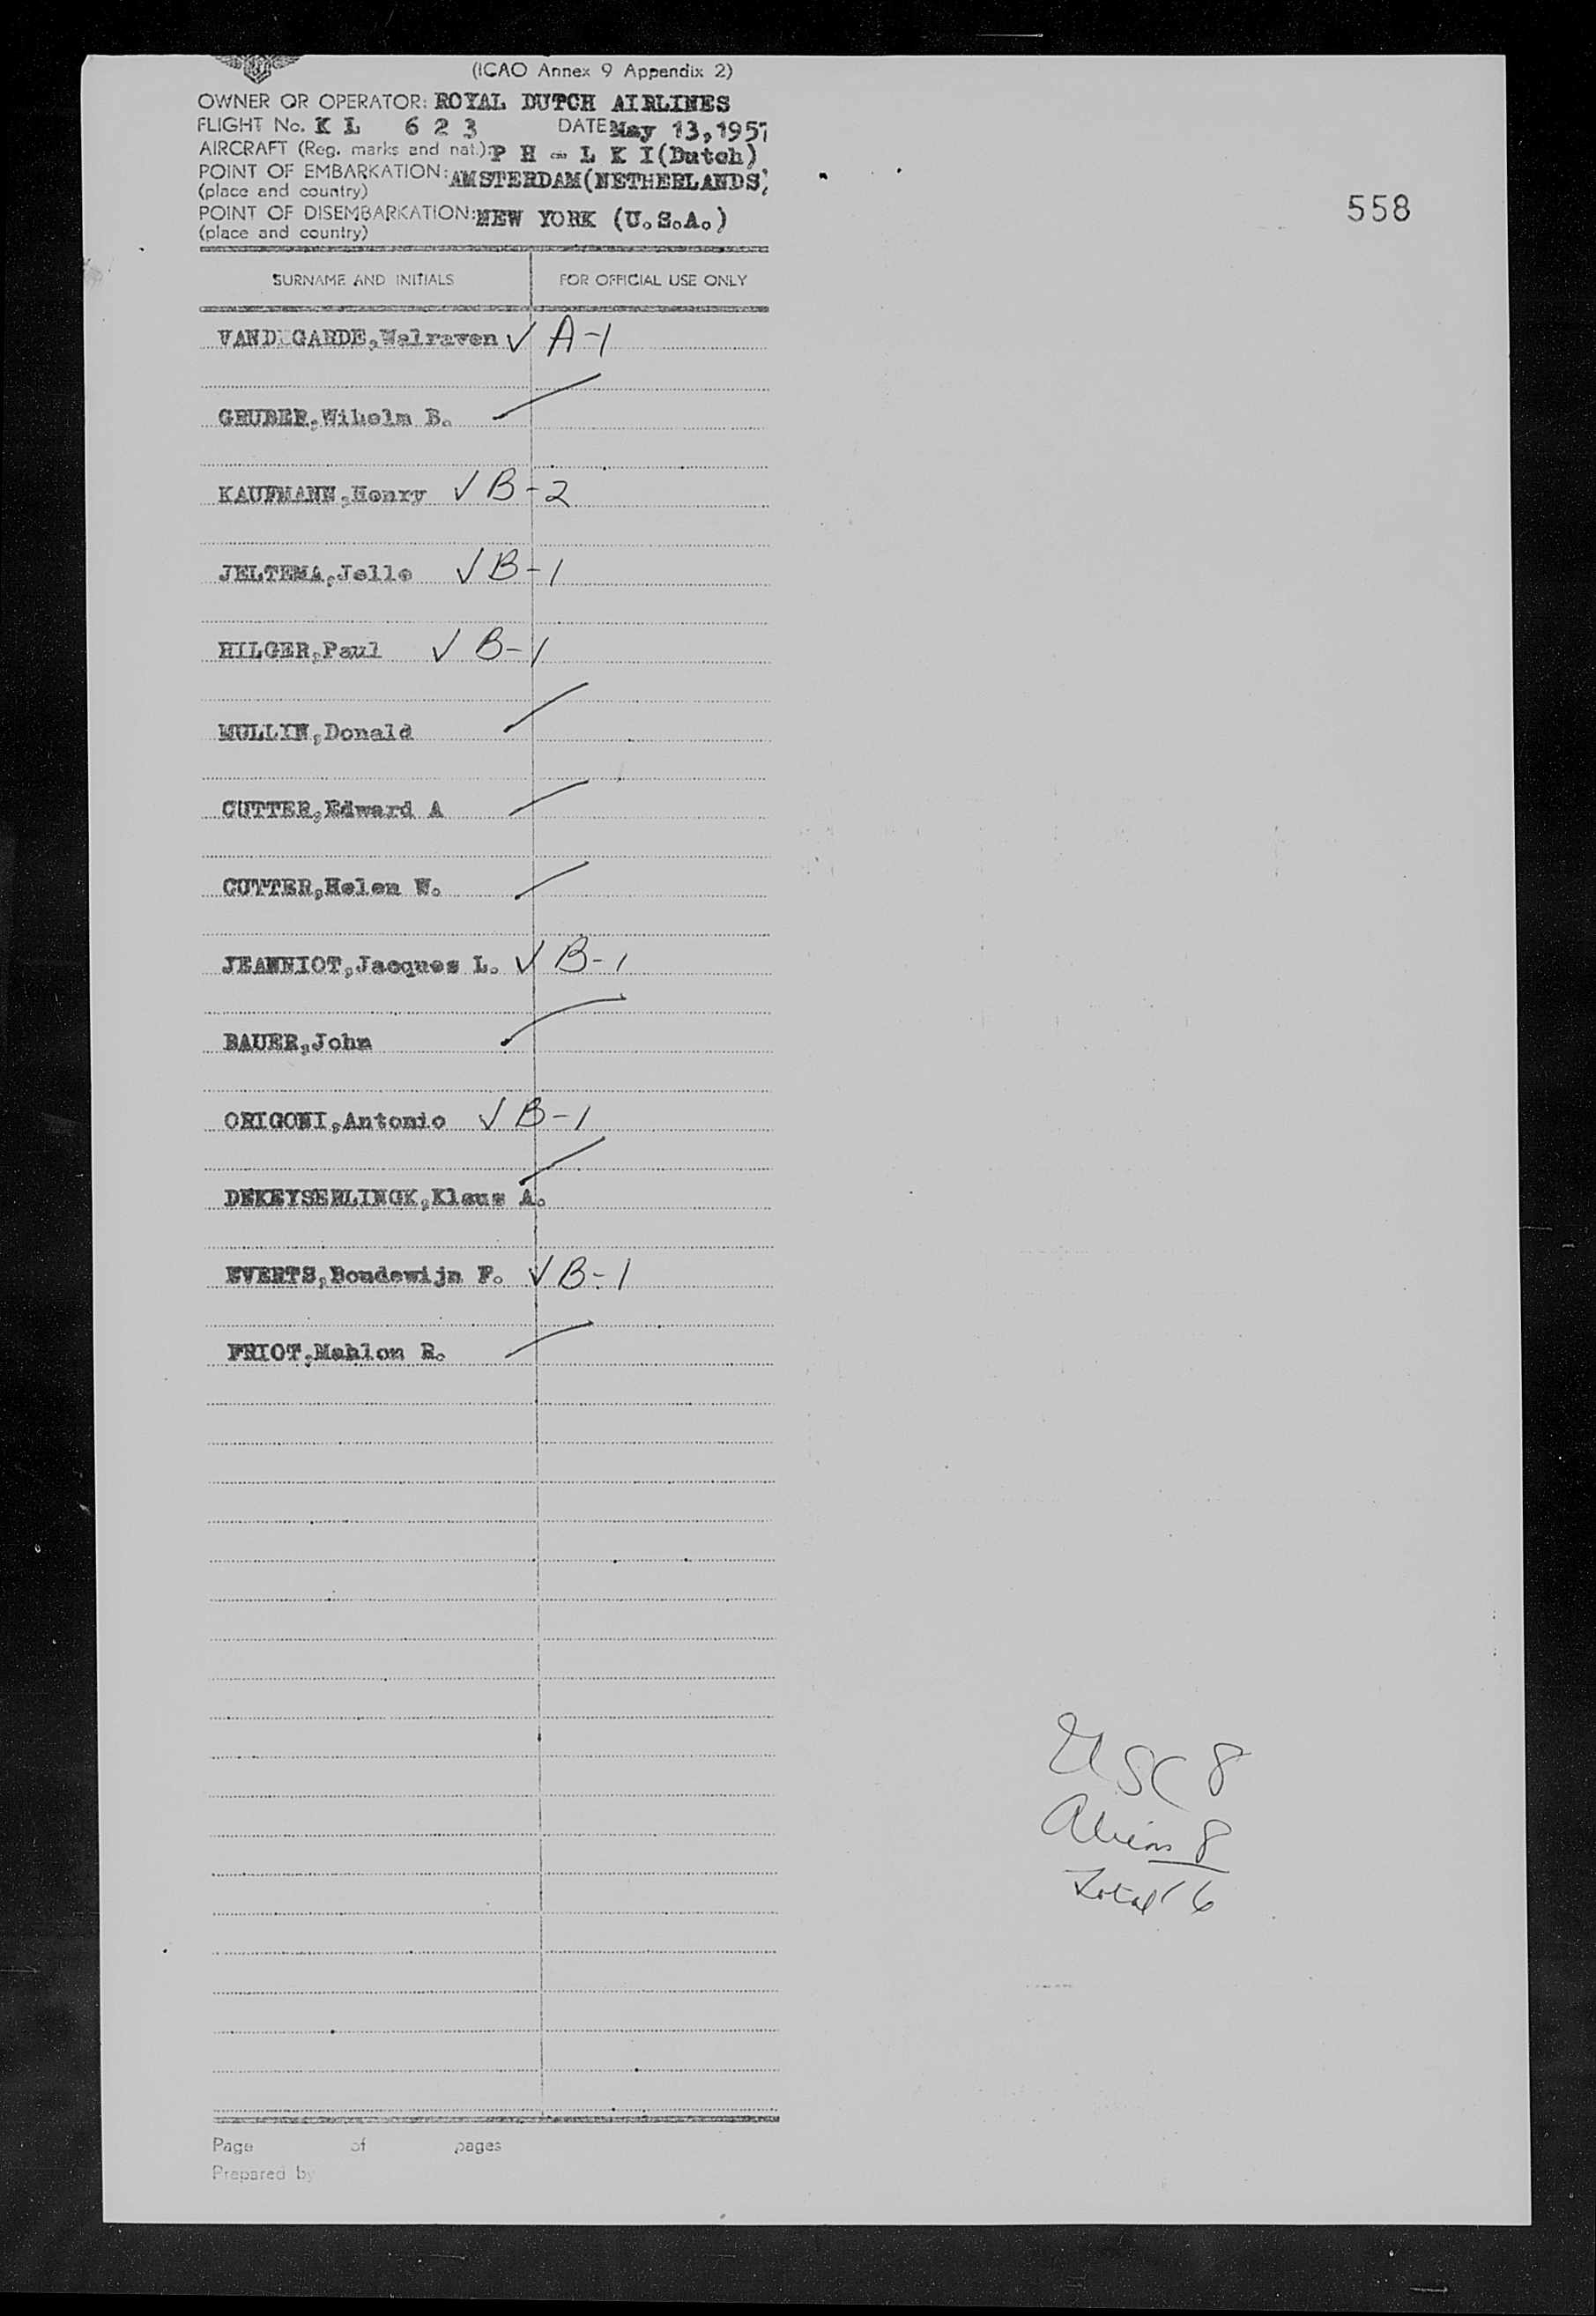 (ICAO Annex 9 Appendix 2)
OWNER OR OPERATOR: ROYAL DUTCH AIRLINES
FLIGHT No. K L 6 2 3 DATE May 13, 1957
AIRCRAFT (Reg. marks and nat.): P H - L K I (Dutch)
POINT OF EMBARKATION: AMSTERDAM (NETHERLANDS)
(place and country)
558
POINT OF DISEMBARKATION: NEW YORK (U.S.A.)
(place and country)
SURNAME AND INITIALS FOR OFFICIAL USE ONLY
GARDE, Walraven ✓ A-1
GRUBER, Wihelm B.
KAUFMANN, Henry ✓ B-2
JELTEMA, Jelle ✓ B-1
HILGER, Paul ✓ B-1
MULLIN, Donald
CUTTER, Edward A
CUTTER, Helen W.
JEANNIOT, Jacques L. ✓ B-1
BAUER, John
ORIGONI, Antonio ✓ B-1
DEKEYSERLINGK, Klaus A.
EVERTS, Boudewijn F. ✓ B-1
FRIOT, Mahlon R.
USC 8
Aliens 8
Total 16
Page of pages
Prepared by